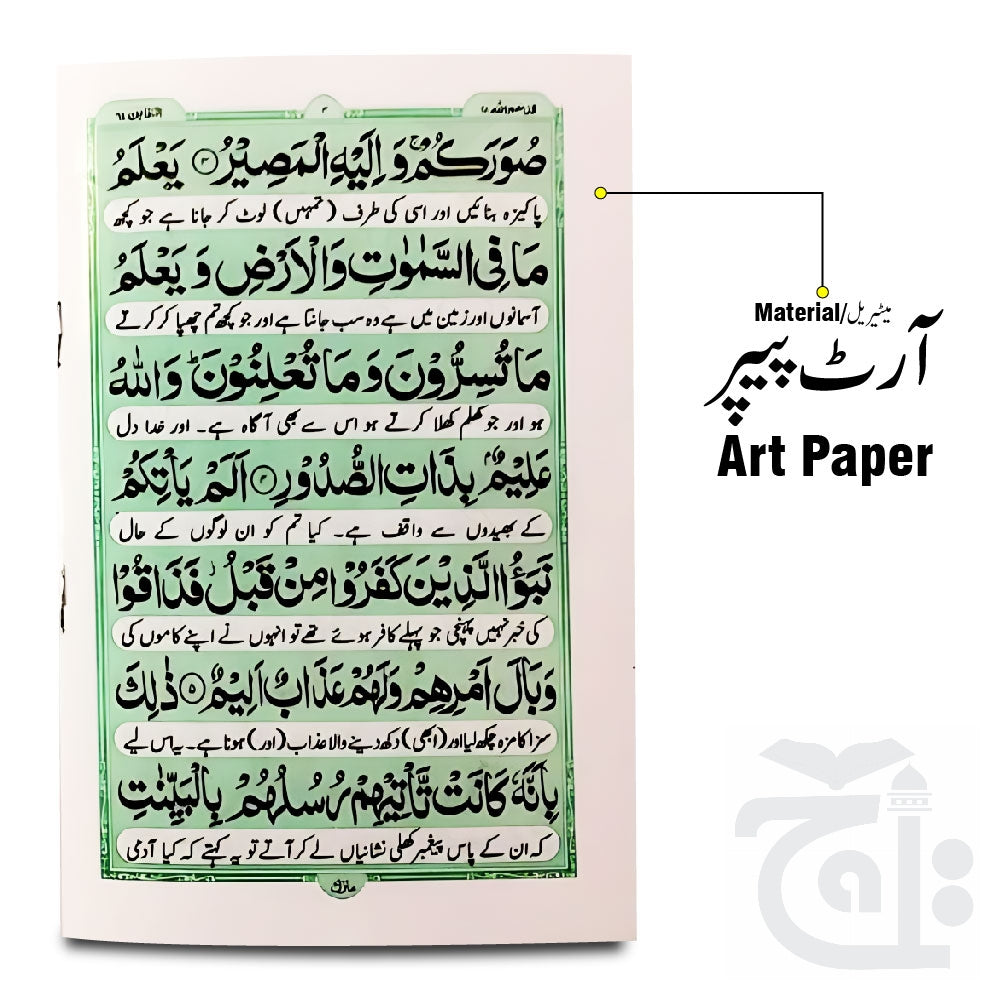 التغابن ٦٤
٣
صُوَرَكُمْ ۚ وَ اِلَيْهِ الْمَصِيْرُ ۝۳ يَعْلَمُ
پاکیزہ بنائیں اور اسی کی طرف (تمہیں) لوٹ کر جانا ہے جو کچھ
مَا فِی السَّمٰوٰتِ وَ الْاَرْضِ وَ يَعْلَمُ
آسمانوں اور زمین میں ہے وہ سب جانتا ہے اور جو کچھ تم چھپا کر کرتے
مَا تُسِرُّوْنَ وَ مَا تُعْلِنُوْنَ ؕ وَ اللّٰهُ
ہو اور جو کھلم کھلا کرتے ہو اس سے بھی آگاہ ہے۔ اور خدا دل
عَلِيْمٌۢ بِذَاتِ الصُّدُوْرِ ۝۴ اَلَمْ يَاْتِكُمْ
کے بھیدوں سے واقف ہے۔ کیا تم کو ان لوگوں کے حال
نَبَؤُا الَّذِيْنَ كَفَرُوْا مِنْ قَبْلُ ؗ فَذَاقُوْا
کی خبر نہیں پہنچی جو پہلے کافر ہوئے تھے تو انہوں نے اپنے کاموں کی
وَبَالَ اَمْرِهِمْ وَلَهُمْ عَذَابٌ اَلِيْمٌ ۝۵ ذٰلِكَ
سزا کا مزہ چکھ لیا اور (ابھی) دکھ دینے والا عذاب (اور) ہونا ہے۔ یہ اس لیے
بِاَنَّهٗ كَانَتْ تَّاْتِيْهِمْ رُسُلُهُمْ بِالْبَيِّنٰتِ
کہ ان کے پاس پیغمبر کھلی نشانیاں لے کر آتے تو یہ کہتے کہ کیا آدمی
منزل
Material/میٹیریل
آرٹ پیپر
Art Paper
تاج